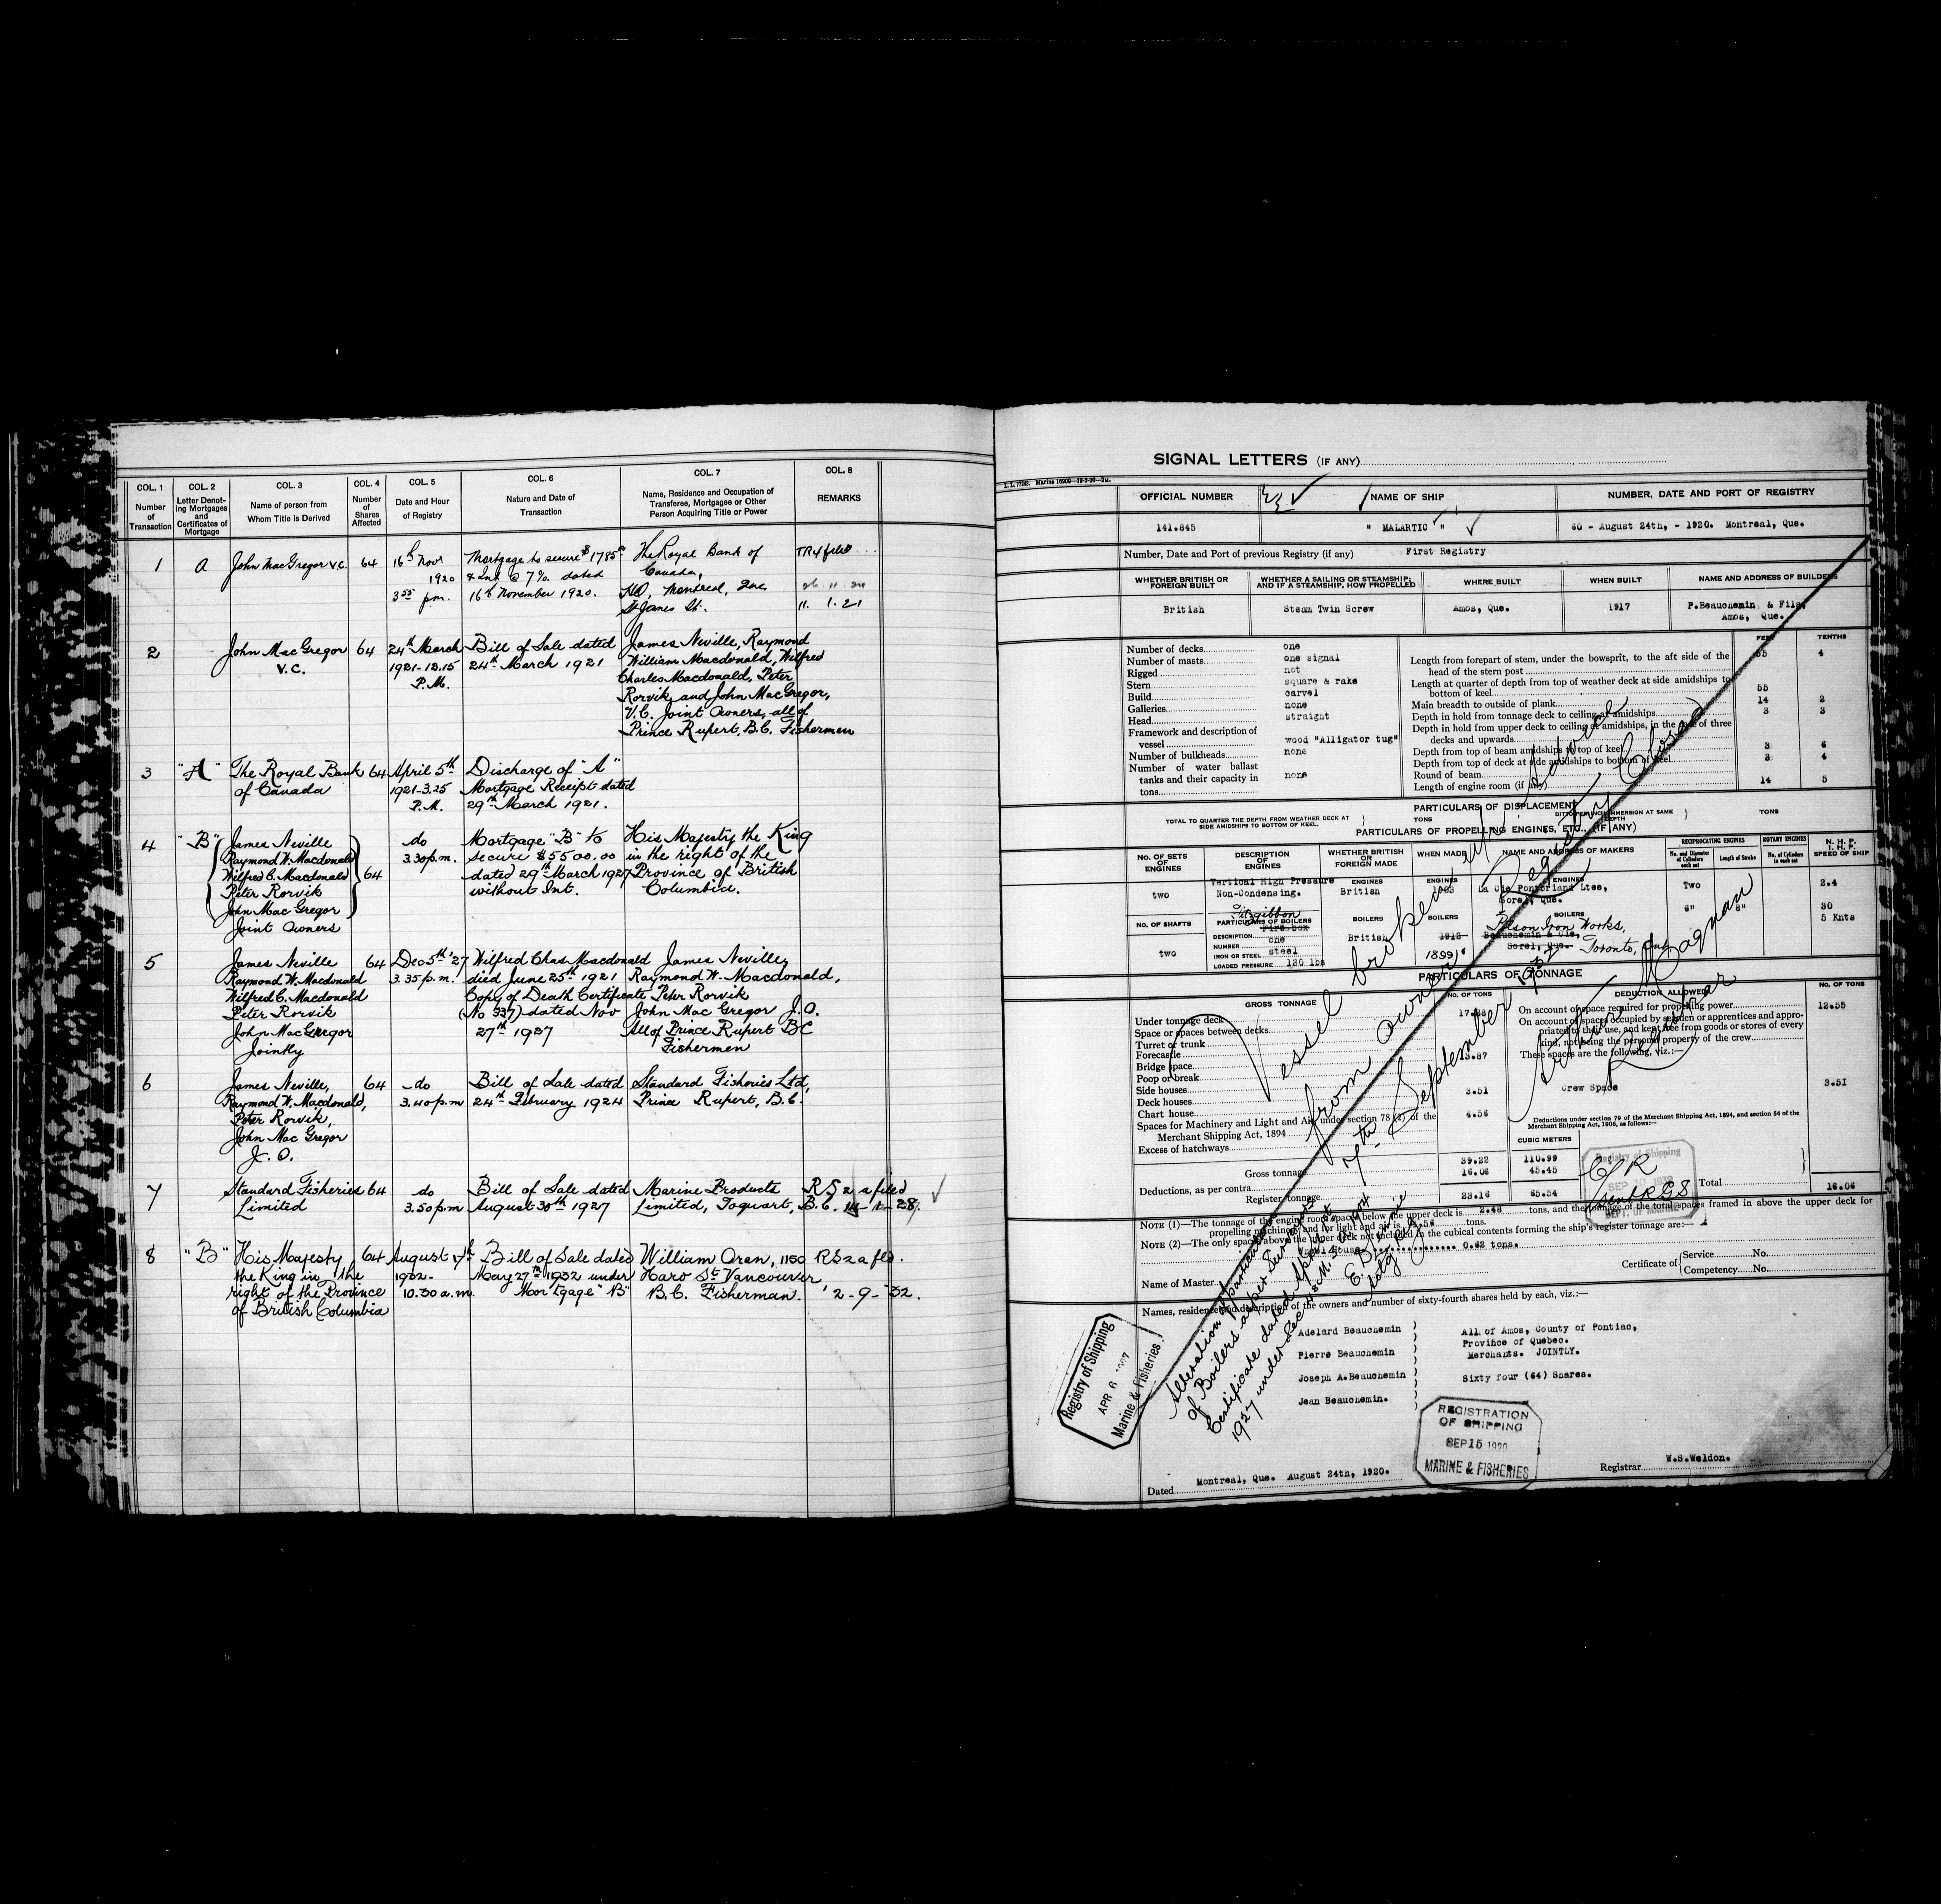 COL. 1
Number
of
Transaction
COL. 2
Letter Denot-
ing Mortgages
and
Certificates of
Mortgage
COL. 3
Name of person from
Whom Title is Derived
COL. 4
Number
of
Shares
Affected
COL. 5
Date and Hour
of Registry
COL. 6
Nature and Date of
Transaction
COL. 7
Name, Residence and Occupation of
Transferee, Mortgagee or Other
Person Acquiring Title or Power
COL. 8
REMARKS
1
A
John MacGregor V.C.
64
16th Novr
1920
3 55 p.m.
Mortgage to secure $1785
& Int @ 7%. dated
16th November 1920.
The Royal Bank of
Canada,
HO, Montreal, Que
St James St.
TR4 filed
11. 1. 21
2
John Mac Gregor
V.C.
64
24th March
1921-12.15
P.M.
Bill of Sale dated
24th March 1921
James Neville, Raymond
William Macdonald, Wilfred
Charles Macdonald, Peter
Rorvik and John MacGregor,
V.C. Joint Owners, all of
Prince Rupert, B.C. Fishermen
3
"A"
The Royal Bank
of Canada
64
April 5th
1921-3.25
P.M.
Discharge of "A"
Mortgage Receipt dated
29th March 1921.
4
"B"
James Neville
Raymond W. Macdonald
Wilfred C. Macdonald
Peter Rorvik
John Mac Gregor
Joint Owners
64
do
3.30 p.m.
Mortgage "B" to
secure $5500.00
dated 29th March 1927
without Int.
His Majesty the King
in the right of the
Province of British
Columbia.
5
James Neville
Raymond W. Macdonald
Wilfred C. Macdonald
Peter Rorvik
John MacGregor
Jointly
64
Dec 5th '27
3.35 p.m.
Wilfred Chas Macdonald
died June 25th 1921
Copy of Death Certificate
(No 937) dated Nov
27th 1927
James Neville,
Raymond W. Macdonald,
Peter Rorvik
John Mac Gregor J.O.
All of Prince Rupert BC
Fishermen
6
James Neville,
Raymond W. Macdonald,
Peter Rorvik,
John Mac Gregor
J. O.
64
do
3.40 p.m
Bill of Sale dated
24th February 1924
Standard Fisheries Ltd,
Prince Rupert, B.C.
7
Standard Fisheries
Limited
64
do
3.50 p.m
Bill of Sale dated
August 30th 1927
Marine Products
Limited, Toquart, B.C.
RS 2 a filed
1-28
8
"B"
His Majesty
the King in the
right of the Province
of British Columbia
64
August 17th
1932-
10.30 a.m.
Bill of Sale dated
May 27th 1932 under
Mortgage "B"
William Oran, 1150
Haro St Vancouver
B.C. Fisherman.
RS 2 a fld.
2-9-32.
SIGNAL LETTERS (IF ANY)
OFFICIAL NUMBER
NAME OF SHIP
NUMBER, DATE AND PORT OF REGISTRY
141.845
" MALARTIC "
60 - August 24th, - 1920. Montreal, Que.
Number, Date and Port of previous Registry (if any)
First Registry
WHETHER BRITISH OR
FOREIGN BUILT
WHETHER A SAILING OR STEAMSHIP;
AND IF A STEAMSHIP, HOW PROPELLED
WHERE BUILT
WHEN BUILT
NAME AND ADDRESS OF BUILDERS
British
Steam Twin Screw
Amos, Que.
1917
P.Beauchemin & Fils,
Amos, Que.
Number of decks one
Number of masts one signal
Rigged not
Stern square & rake
Build carvel
Galleries none
Head straight
Framework and description of
vessel wood "Alligator tug"
Number of bulkheads none
Number of water ballast
tanks and their capacity in
tons none
FEET
TENTHS
Length from forepart of stem, under the bowsprit, to the aft side of the
head of the stern post 4
Length at quarter of depth from top of weather deck at side amidships to
bottom of keel 55
Main breadth to outside of plank 14 2
Depth in hold from tonnage deck to ceiling at amidships 3 3
Depth in hold from upper deck to ceiling at amidships, in the case of three
decks and upwards
Depth from top of beam amidships to top of keel 3 6
Depth from top of deck at side amidships to bottom of keel 3 4
Round of beam
Length of engine room (if any) 14 5
PARTICULARS OF DISPLACEMENT
TOTAL TO QUARTER THE DEPTH FROM WEATHER DECK AT
SIDE AMIDSHIPS TO BOTTOM OF KEEL.
TONS
DITTO PER INCH IMMERSION AT SAME
DEPTH
TONS
PARTICULARS OF PROPELLING ENGINES, ETC., (IF ANY)
NO. OF SETS
OF
ENGINES
DESCRIPTION
OF
ENGINES
WHETHER BRITISH
OR
FOREIGN MADE
WHEN MADE
NAME AND ADDRESS OF MAKERS
RECIPROCATING ENGINES
No. and Diameter
of Cylinders
each set
Length of Stroke
ROTARY ENGINES
No. of Cylinders
in each set
N. H. P.
I. H. P.
SPEED OF SHIP
two
Vertical High Pressure
Non-Condensing.
ENGINES
British
ENGINES
ENGINES
La Cie Pontbriand Ltee,
Sorel, Que.
Two
6" 8"
2.4
30
5 Knts
NO. OF SHAFTS
two
Fitzgibbon
PARTICULARS OF BOILERS
Fire box
DESCRIPTION
NUMBER one
IRON OR STEEL steel
LOADED PRESSURE 130 lbs
BOILERS
British
BOILERS
1912
1899
BOILERS
Polson Iron Works,
Beauchemin & Cie,
Sorel, Que. Toronto, Ont
PARTICULARS OF TONNAGE
GROSS TONNAGE
NO. OF TONS
DEDUCTION ALLOWED
NO. OF TONS
Under tonnage deck
Space or spaces between decks
Turret or trunk
Forecastle
Bridge space
Poop or break
Side houses 3.51
Deck houses
Chart house 4.56
Spaces for Machinery and Light and Air, under section 78 (2) of the
Merchant Shipping Act, 1894
Excess of hatchways
On account of space required for propelling power 12.55
On account of spaces occupied by seamen or apprentices and appro-
priated to their use, and kept free from goods or stores of every
kind, not being the personal property of the crew
These spaces are the following, viz.:—
Crew Space 3.51
Deductions under section 79 of the Merchant Shipping Act, 1894, and section 54 of the
Merchant Shipping Act, 1906, as follows:—
CUBIC METERS
Gross tonnage 39.22 110.99
Deductions, as per contra 16.06 45.45
Register tonnage 23.16 65.54
Total 16.06
NOTE (1)—The tonnage of the engine room spaces below the upper deck is 2.48 tons, and the tonnage of the total spaces framed in above the upper deck for
propelling machinery and for light and air is 4.56 tons.
NOTE (2)—The only spaces above the upper deck not included in the cubical contents forming the ship's register tonnage are:—
0.62 tons.
Name of Master
Certificate of
Service No.
Competency No.
Names, residence and description of the owners and number of sixty-fourth shares held by each, viz.:—
Adelard Beauchemin
Pierre Beauchemin
Joseph A.Beauchemin
Jean Beauchemin.
All of Amos, County of Pontiac,
Province of Quebec.
Merchants. JOINTLY.
Sixty four (64) Shares.
Dated Montreal, Que. August 24th, 1920.
Registrar W.S.Weldon.
Vessel broken up. Advice
from owner. Registry Closed
7th September 1932
Arthur Magman
Registrar
Alteration of particulars
of Boilers as per Surveyors
Certificate dated April 1st
1927 under Sec 48 M.S. Act 1894
Registry of Shipping
APR 6 1927
Marine & Fisheries
REGISTRATION
OF SHIPPING
SEP 15 1920
MARINE & FISHERIES
Registry of Shipping
SEP 10 1932
DEPT. OF MARINE